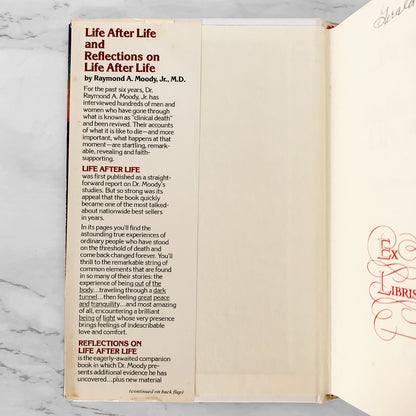 Life After Life
and
Reflections on
Life After Life
by Raymond A. Moody, Jr., M.D.
For the past six years, Dr.
Raymond A. Moody, Jr. has
interviewed hundreds of men and
women who have gone through
what is known as "clinical death"
and been revived. Their accounts
of what it is like to die—and more
important, what happens at that
moment—are startling, remark-
able, revealing and faith-
supporting.
LIFE AFTER LIFE
was first published as a straight-
forward report on Dr. Moody's
studies. But so strong was its
appeal that the book quickly
became one of the most talked-
about nationwide best sellers
in years.
In its pages you'll find the
astounding true experiences of
ordinary people who have stood
on the threshold of death and
come back changed forever. You'll
thrill to the remarkable string of
common elements that are found
in so many of their stories: the
experience of being out of the
body...traveling through a dark
tunnel...then feeling great peace
and tranquility...and most amazing
of all, encountering a brilliant
being of light whose very presence
brings feelings of indescribable
love and comfort.
REFLECTIONS ON
LIFE AFTER LIFE
is the eagerly-awaited companion
book in which Dr. Moody pre-
sents additional evidence he has
uncovered...plus new material
(continued on back flap)
Gerald
Ex
Libris